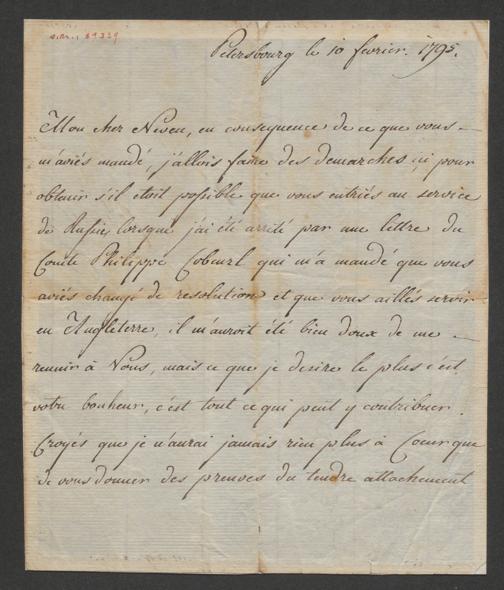 Petersbourg le 10 fevrier. 1795.
Mon cher Neveu, en consequence de ce que vous
m'aviés mandé, j'allois faire des demarches ici pour
obtenir s'il etoit possible que vous entriés au service
de Russie, lorsque j'ai été arrêté par une lettre du
Comte Philippe Cobenzl qui m'a mandé que vous
aviés changé de resolution et que vous alliés servir
en Angleterre, il m'auroit été bien doux de me
reunir à Vous, mais ce que je desire le plus c'est
votre bonheur, c'est tout ce qui peut y contribuer.
Croyés que je n'aurai jamais rien plus à Coeur que
de vous donner des preuves du tendre attachement